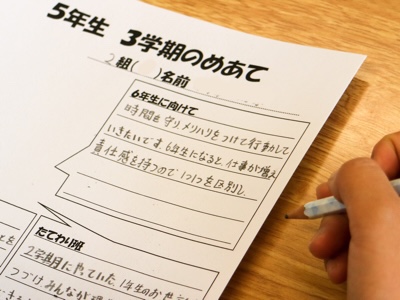 5年生 3学期のめあて
2組( )名前
6年生に向けて
時間を守り、メリハリをつけて行動して
いきたいです。6年生になると、仕事が増え
責任感を持つので1つ1つを区別し
たてわり班
2学期までやっていた、1年生のお世話
つづけみんなが